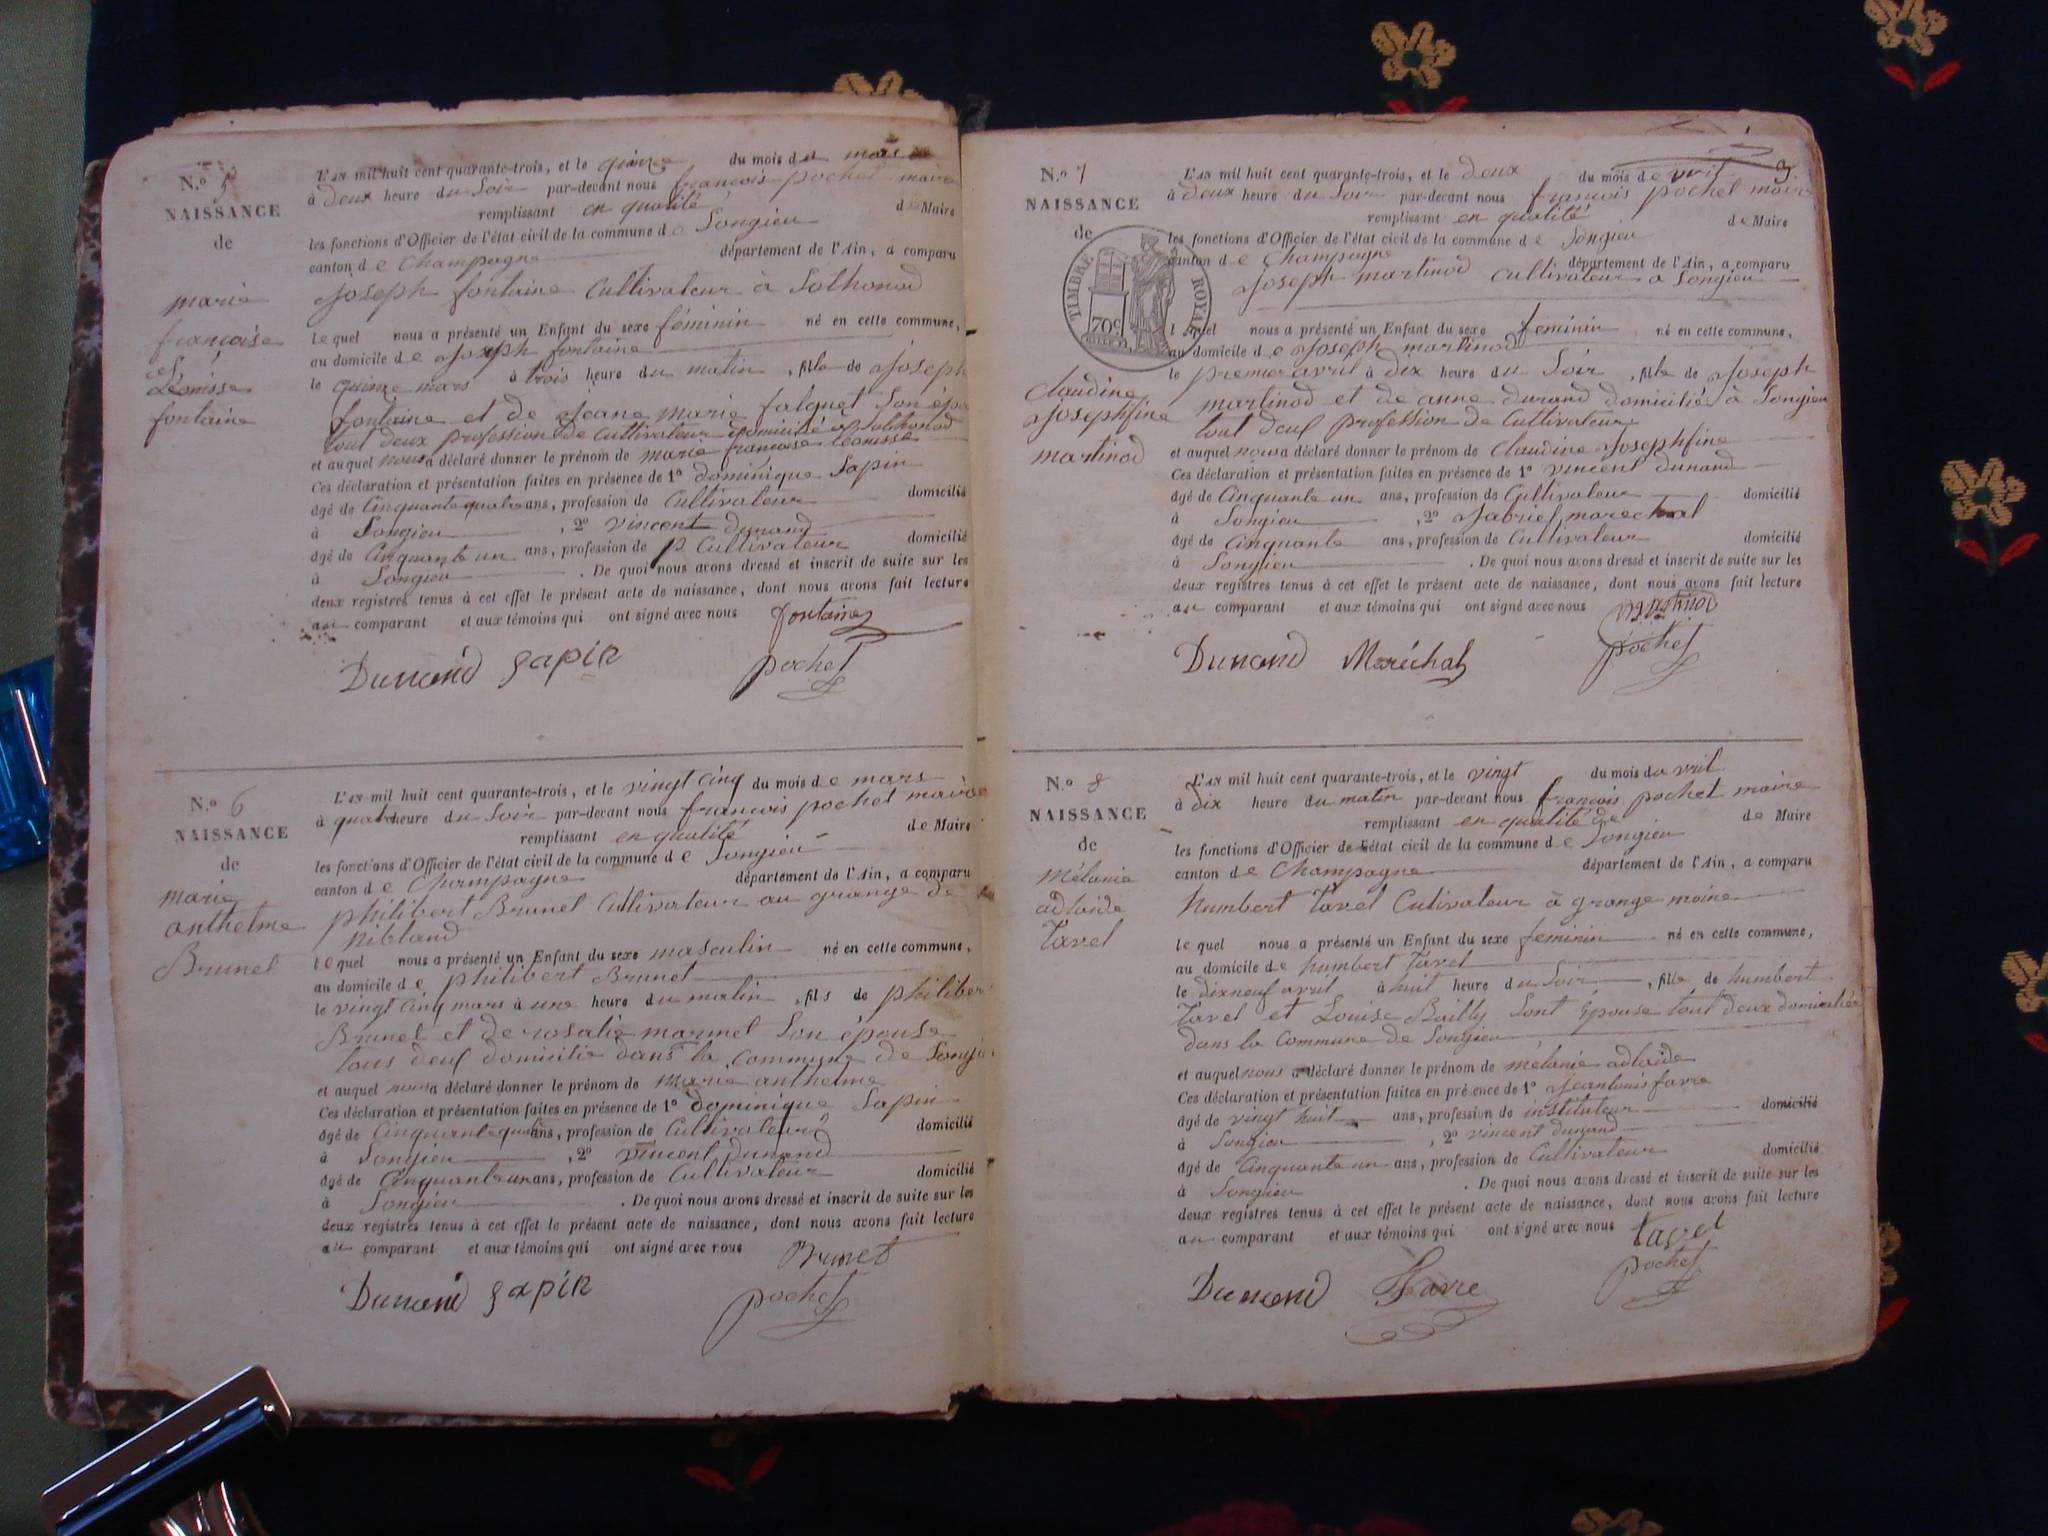 N.º 5
NAISSANCE
de
marie
françoise
Léonisse
fontaine
L'AN mil huit cent quarante-trois, et le quinze du mois de mars
à deux heure du Soir par-devant nous françois pochet maire
remplissant en qualité de Maire
les fonctions d'Officier de l'état civil de la commune de Songieu
canton de Champagne département de l'Ain, a comparu
Joseph fontaine Cultivateur à Solhonod
le quel nous a présenté un Enfant du sexe féminin né en cette commune,
au domicile de Joseph fontaine
le quinze mars à trois heure du matin , fille de Joseph
fontaine et de Jeane marie falquet Son
tout deux profession de Cultivateur domicilié à Solhonod
et auquel nous a déclaré donner le prénom de marie françoise Léonisse
Ces déclaration et présentation faites en présence de 1º dominique Sapin
âgé de Cinquante quatre ans, profession de Cultivateur domicilié
à Songieu , 2º vincent dunand
âgé de Cinquante un ans, profession de p Cultivateur domicilié
à Songieu . De quoi nous avons dressé et inscrit de suite sur les
deux registres tenus à cet effet le présent acte de naissance, dont nous avons fait lecture
au comparant et aux témoins qui ont signé avec nous fontaine
Dunand Sapin pochet
N.º 6
NAISSANCE
de
marie
anthelme
Brunet
L'AN mil huit cent quarante-trois, et le vingt cinq du mois de mars
à quatre heure du Soir par-devant nous françois pochet maire
remplissant en qualité de Maire
les fonctions d'Officier de l'état civil de la commune de Songieu
canton de Champagne département de l'Ain, a comparu
philibert Brunet Cultivateur au grange de
le quel nous a présenté un Enfant du sexe masculin né en cette commune,
au domicile de philibert Brunet
le vingt cinq mars à une heure du matin , fils de philiber
Brunet et de rosalie marmet Son épouse
tous deux domicilié dans la Commune de
et auquel nous a déclaré donner le prénom de marie anthelme
Ces déclaration et présentation faites en présence de 1º dominique Sapin
âgé de Cinquante quatre ans, profession de Cultivateur domicilié
à Songieu , 2º vincent dunand
âgé de Cinquante un ans, profession de Cultivateur domicilié
à Songieu . De quoi nous avons dressé et inscrit de suite sur les
deux registres tenus à cet effet le présent acte de naissance, dont nous avons fait lecture
au comparant et aux témoins qui ont signé avec nous Brunet
Dunand Sapin pochet
3
N.º 7
NAISSANCE
de
TIMBRE ROYAL
70 c.
Claudine
Josephfine
martinod
L'AN mil huit cent quarante-trois, et le deux du mois de vril
à deux heure du Soir par-devant nous françois pochet maire
remplissant en qualité de Maire
les fonctions d'Officier de l'état civil de la commune de Songieu
canton de Champagne département de l'Ain, a comparu
Joseph martinod Cultivateur a Songieu
l quel nous a présenté un Enfant du sexe feminin né en cette commune,
au domicile de Joseph martinod
le premier avril à dix heure du Soir , fille de Joseph
martinod et de anne durand domicilié a Songieu
tout deux profession de Cultivateur
et auquel nous a déclaré donner le prénom de Claudine Josephfine
Ces déclaration et présentation faites en présence de 1º vincent dunand
âgé de Cinquante un ans, profession de Cultivateur domicilié
à Songieu , 2º Gabriel marechal
âgé de Cinquante ans, profession de Cultivateur domicilié
à Songieu . De quoi nous avons dressé et inscrit de suite sur les
deux registres tenus à cet effet le présent acte de naissance, dont nous avons fait lecture
au comparant et aux témoins qui ont signé avec nous martinod
Dunand Maréchal pochet
N.º 8
NAISSANCE
de
mélanie
adlaide
Tavel
L'AN mil huit cent quarante-trois, et le vingt du mois davril
à dix heure du matin par-devant nous françois pochet maire
remplissant en qualité de de Maire
les fonctions d'Officier de l'état civil de la commune de Songieu
canton de Champagne département de l'Ain, a comparu
humbert Tavel Cultivateur à grange moine
le quel nous a présenté un Enfant du sexe feminin né en cette commune,
au domicile de humbert Tavel
le dixneuf avril à huit heure du Soir , fille de humbert
Tavel et Louise Bailly Sont Epouse tout deux domiciliés
dans la Commune de Songieu
et auquel nous a déclaré donner le prénom de mélanie adlaide
Ces déclaration et présentation faites en présence de 1º Jeanlouis favre
âgé de vingt huit ans, profession de instituteur domicilié
à Songieu , 2º vincent dunand
âgé de Cinquante un ans, profession de Cultivateur domicilié
à Songieu . De quoi nous avons dressé et inscrit de suite sur les
deux registres tenus à cet effet le présent acte de naissance, dont nous avons fait lecture
au comparant et aux témoins qui ont signé avec nous tavel
Dunand Favre pochet